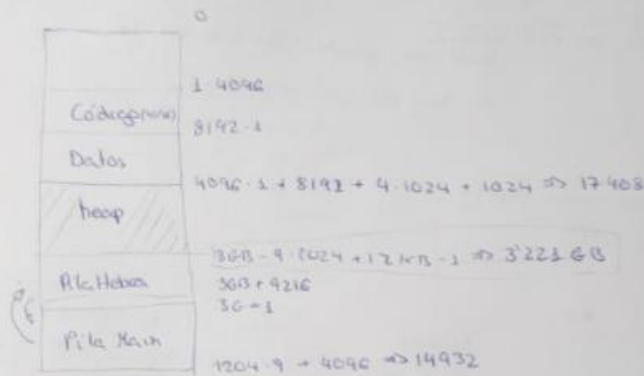 0
1·4096
Código
8192·1
Datos
4096·1 + 8192 + 4·1024 + 1024 => 17408
heap
3GB - 9·1024 + 12KB - 1 => 3'221 GB
Pila Hebra
3GB + 9216
3G-1
Pila Main
1204·9 + 4096 => 14932